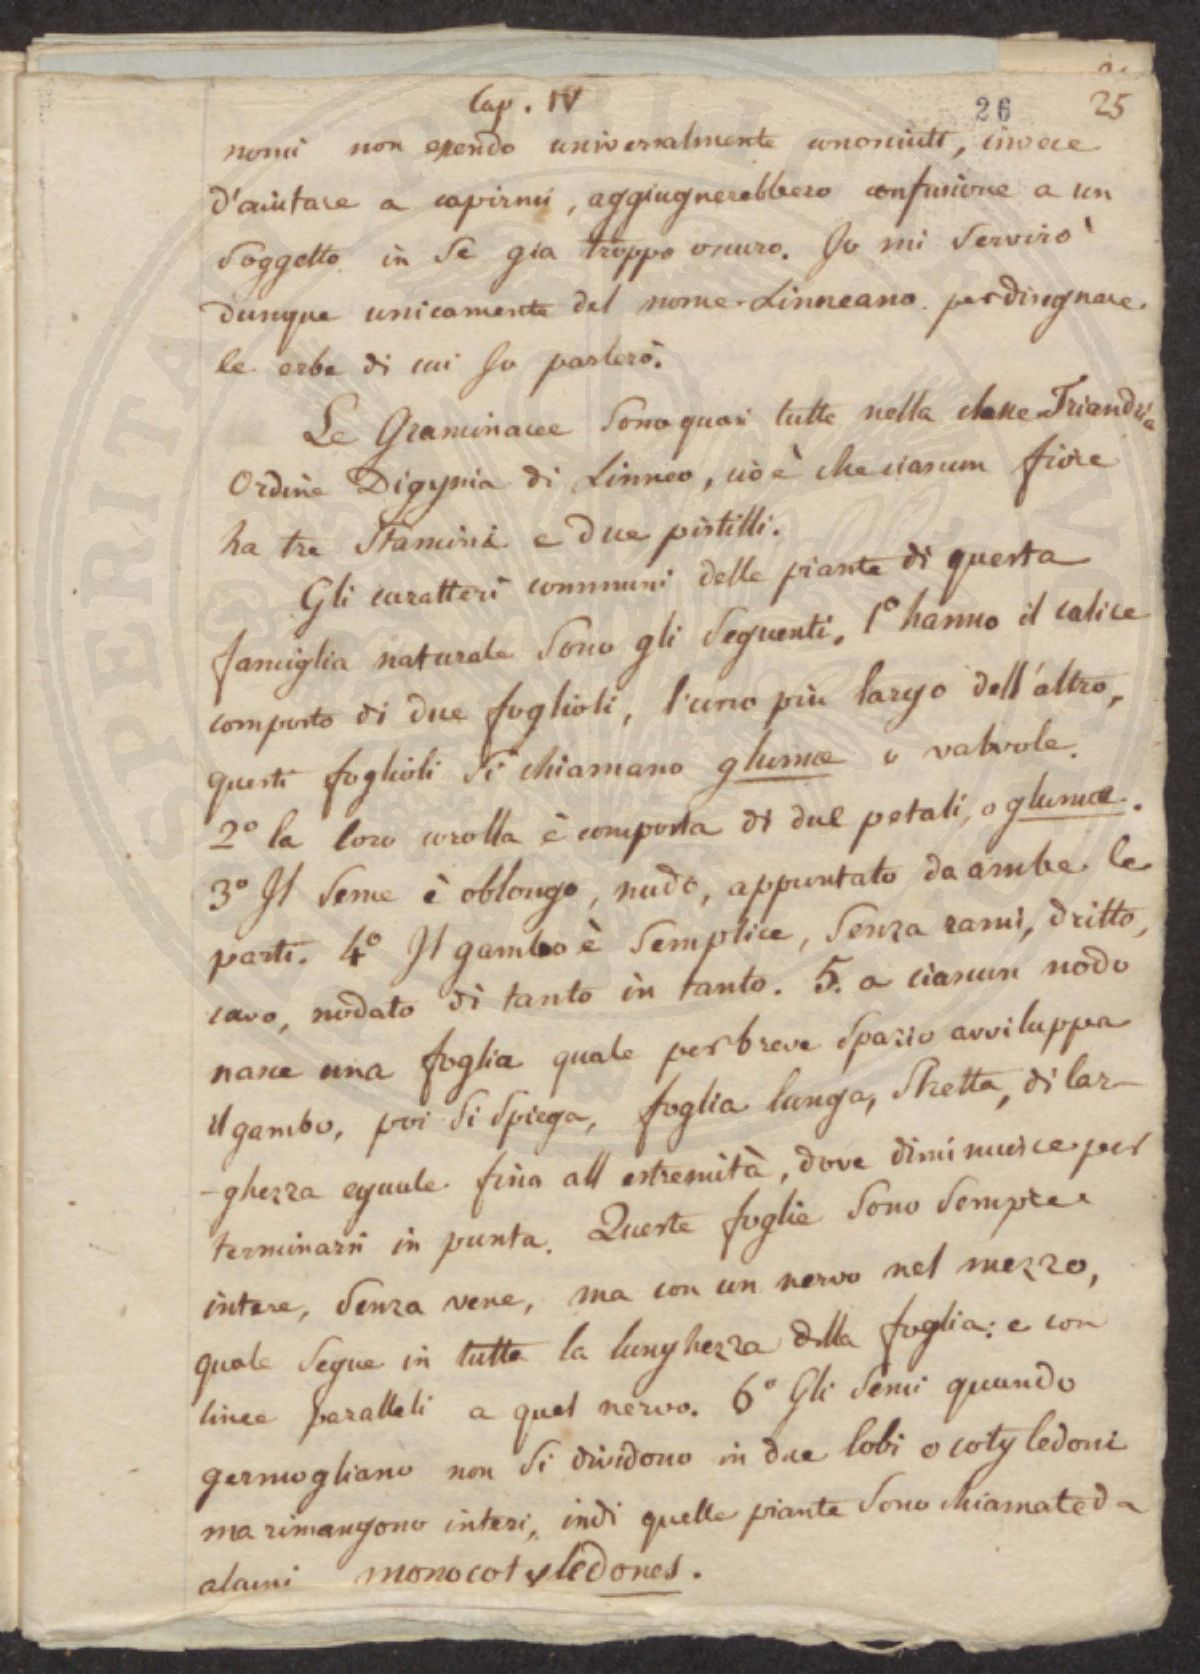 Cap. IV
26
25
nomi non essendo universalmente conosciuti, invece
d'aiutare a capirmi, aggiugnerebbero confusione a un
Soggetto in Se gia troppo oscuro. Jo mi Servirò
dunque unicamente del nome Linneano per disegnare
le erbe di cui Jo parlerò.
Le Graminacee Sono quasi tutte nella classe Triandria
Ordine Digynia di Linneo, cioè che ciascun fiore
ha tre Stamini e due pistilli.
Gli caratteri communi delle piante di questa
famiglia naturale Sono gli Seguenti. 1° hanno il calice
composto di due foglioli, l'uno più largo dell'altro,
questi foglioli Si chiamano glumæ o valvole.
2° la loro corolla è composta di due petali, o glumæ.
3° Il Seme è oblongo, nudo, appuntato da ambe le
parti. 4° Il gambo è Semplice, Senza rami, dritto,
cavo, nodato di tanto in tanto. 5. a ciascun nodo
nasce una foglia quale per breve Spazio avviluppa
il gambo, poi Si Spiega, foglia lunga, Stretta, di lar-
-ghezza eguale fino all estremità, dove diminuisce per
terminarsi in punta. Queste foglie Sono Sempre
intere, Senza vene, ma con un nervo nel mezzo,
quale Segue in tutta la lunghezza della foglia: e con
linee paralleli a quel nervo. 6° Gli Semi quando
germogliano non Si dividono in due lobi o cotyledoni
ma rimangono interi, indi quelle piante Sono chiamate da
alcuni monocotyledones.